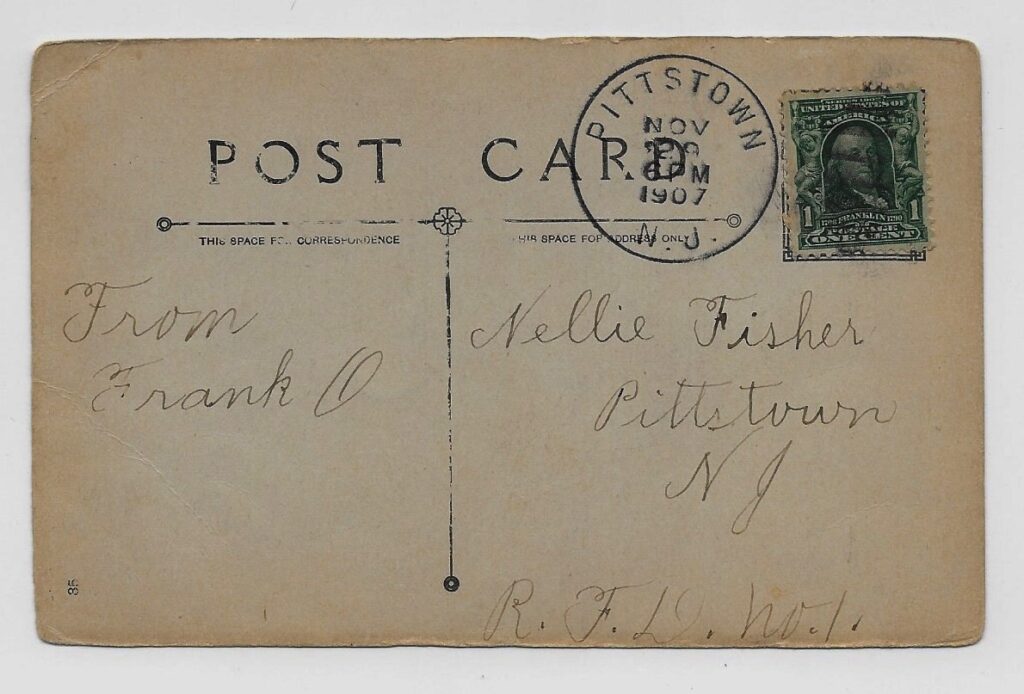 POST CARD
THIS SPACE FOR CORRESPONDENCE
THIS SPACE FOR ADDRESS ONLY
PITTSTOWN
NOV
6PM
1907
N.J.
SERIES 1902
UNITED STATES OF
AMERICA
1 FRANKLIN 1
POSTAGE
ONE CENT
From
Frank O
Nellie Fisher
Pittstown
N J
R. F. D. No. 1.
35